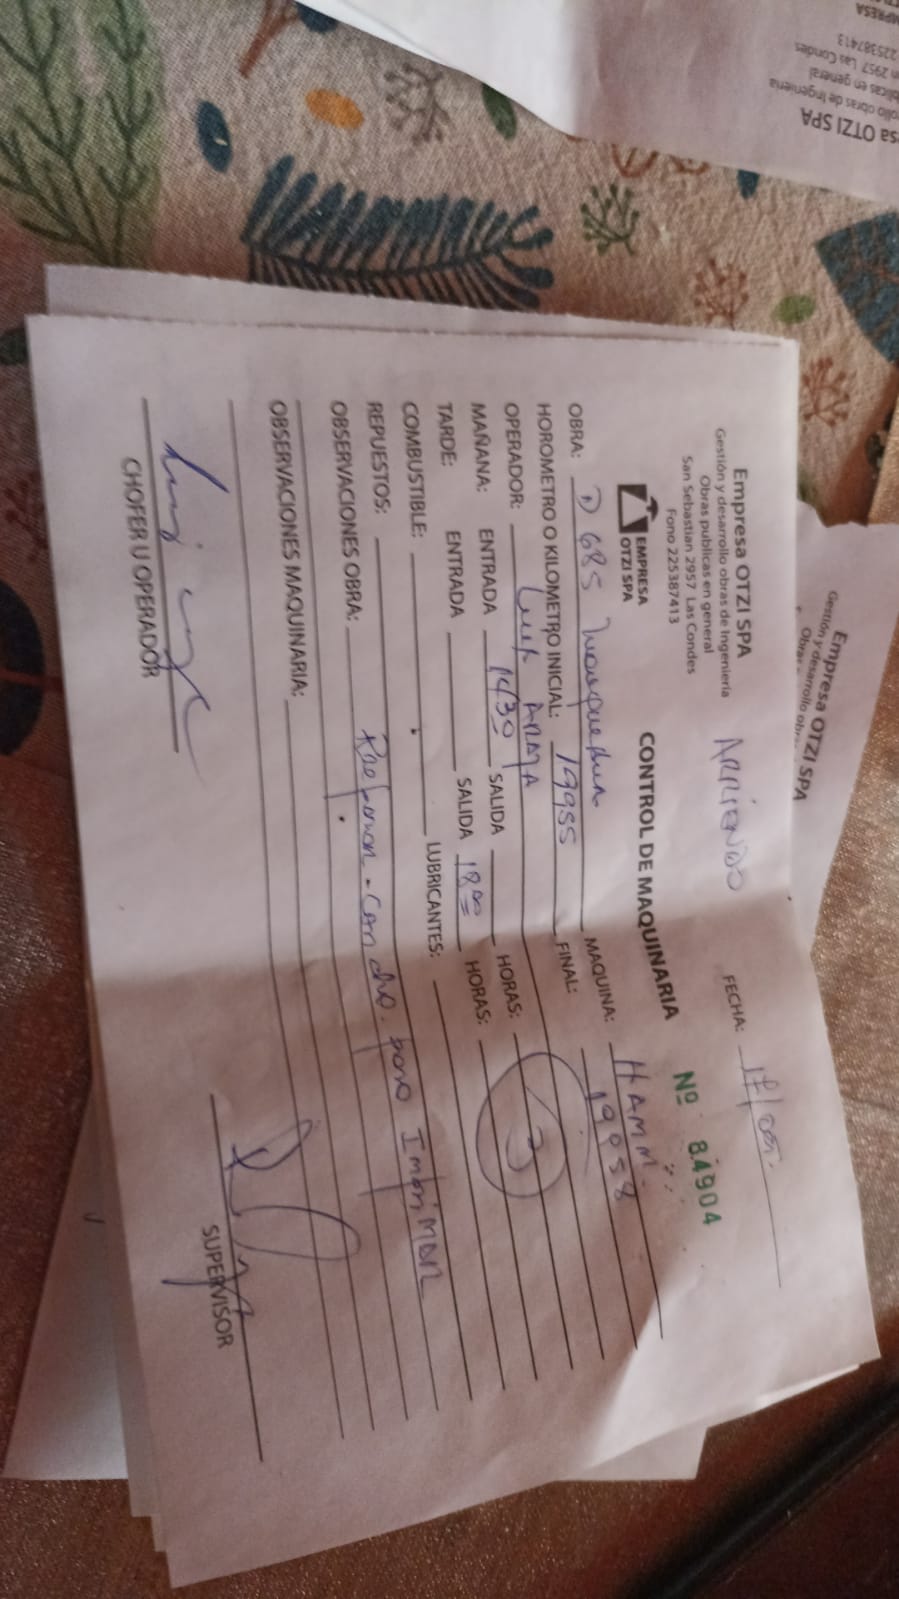 esa OTZI SPA
rollo obras de Ingeniería
blicas en general
n 2957 Las Condes
225387413
EMPRESA
Empresa OTZI SPA
Gestión y desarrollo obr
Obras
Empresa OTZI SPA
Gestión y desarrollo obras de Ingeniería
Obras publicas en general
San Sebastian 2957 Las Condes
Fono 225387413
EMPRESA
OTZI SPA
ARRIENDO
FECHA: 17/oct.
Nº 84904
CONTROL DE MAQUINARIA
OBRA: D 685
MAQUINA: HAMM.
HOROMETRO O KILOMETRO INICIAL: 19955 FINAL: 19958
OPERADOR: Luis ARAYA
MAÑANA: ENTRADA 1430 SALIDA HORAS: 3
TARDE: ENTRADA SALIDA 18 00 HORAS:
COMBUSTIBLE: LUBRICANTES:
REPUESTOS:
OBSERVACIONES OBRA: cancha. para Imprimar
OBSERVACIONES MAQUINARIA:
CHOFER U OPERADOR
SUPERVISOR